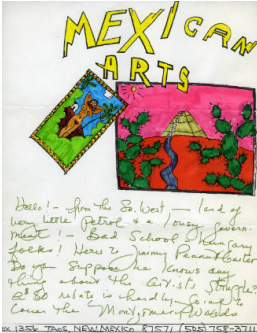 MEXICAN
ARTS
Hello! – from the So. West – land of
very little Petrol & a lousey Govern-
ment! – Bad School & Hungary
folks! Here's Jimmy Peanut Carter
Do you suppose he knows any
thing about the Artists struggle?
relate is hardly going to
Cover the Montgomery Wards
ox 1356 TAOS, NEW MEXICO 87571 505-758-3711